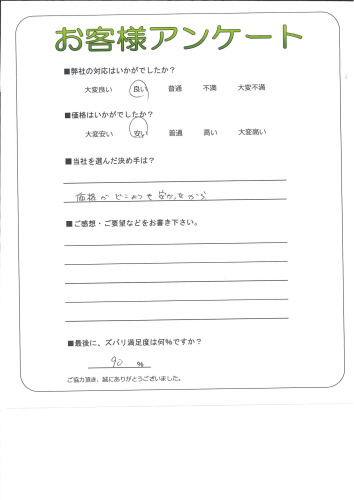 お客様アンケート
■弊社の対応はいかがでしたか？
大変良い 良い 普通 不満 大変不満
■価格はいかがでしたか？
大変安い 安い 普通 高い 大変高い
■当社を選んだ決め手は？
価格がどこよりも安かったから
■ご感想・ご要望などをお書き下さい。
■最後に、ズバリ満足度は何%ですか？
90 %
ご協力頂き、誠にありがとうございました。